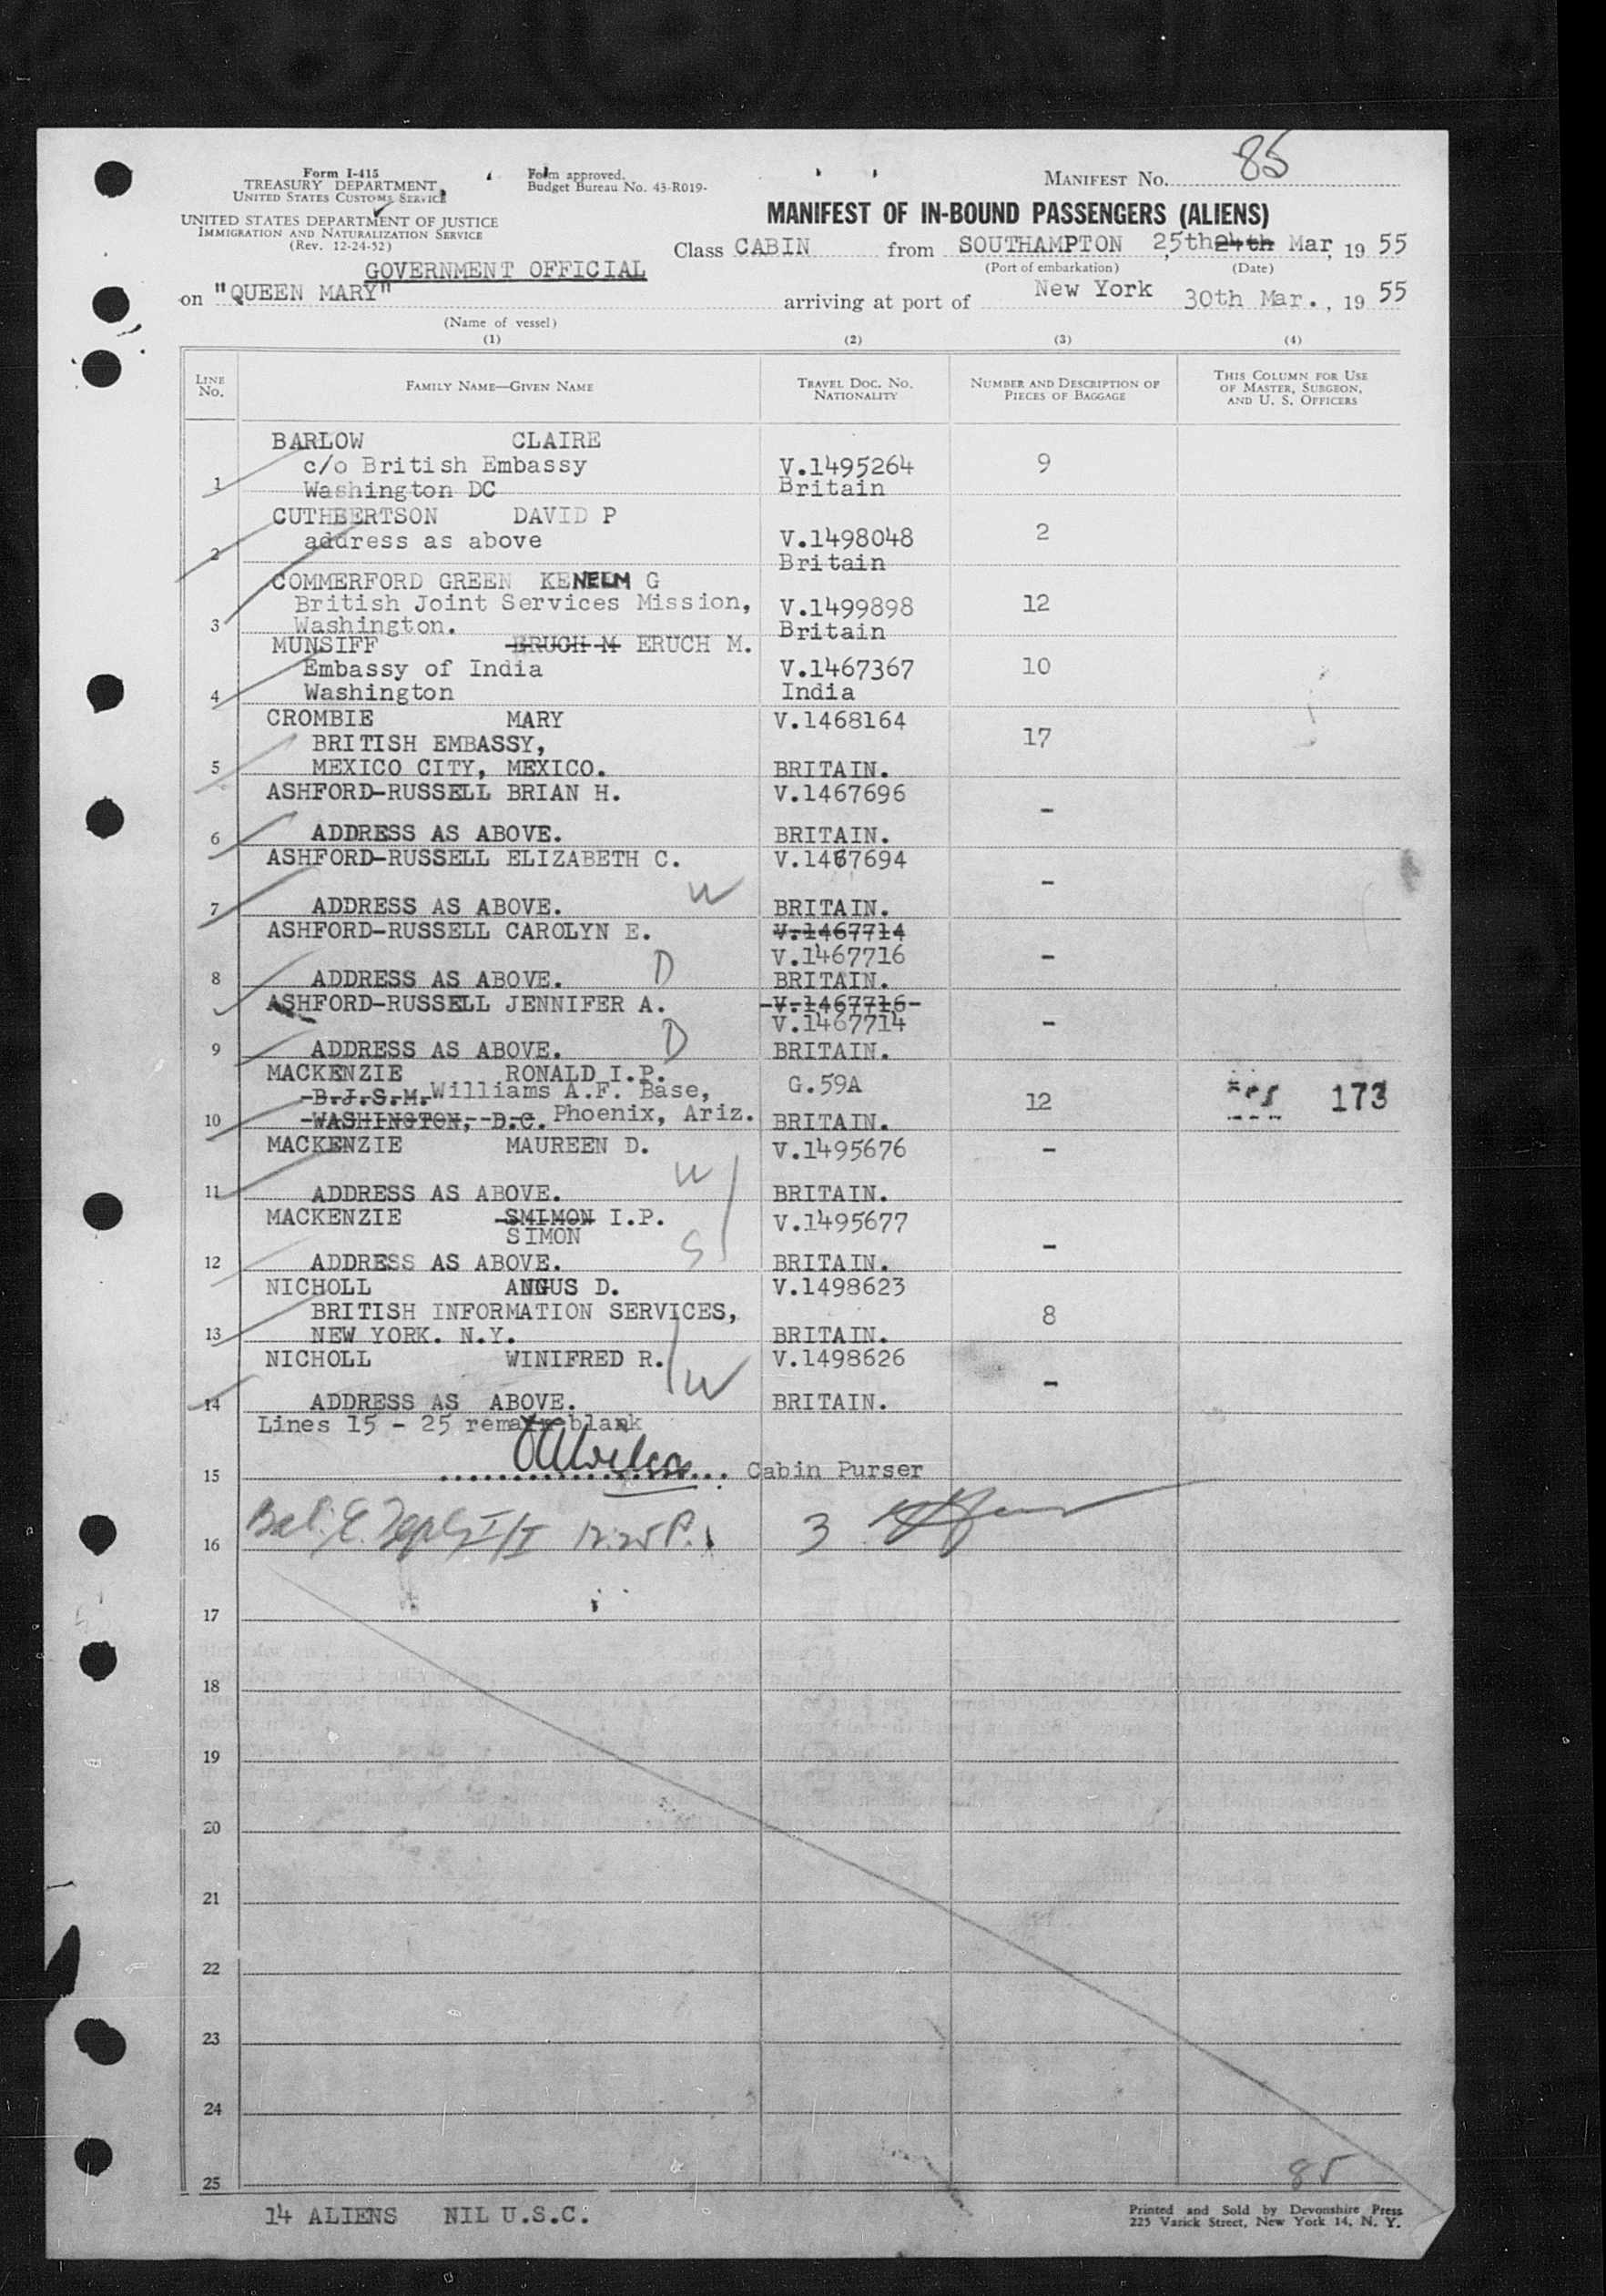 85
Form I-415
TREASURY DEPARTMENT
UNITED STATES CUSTOMS SERVICE
UNITED STATES DEPARTMENT OF JUSTICE
IMMIGRATION AND NATURALIZATION SERVICE
(Rev. 12-24-52)
Form approved.
Budget Bureau No. 43-R019-
MANIFEST NO.
MANIFEST OF IN-BOUND PASSENGERS (ALIENS)
Class CABIN from SOUTHAMPTON, 25th 24th Mar, 19 55
(Port of embarkation) (Date)
GOVERNMENT OFFICIAL
on "QUEEN MARY" arriving at port of New York 30th Mar., 19 55
(Name of vessel)
(1) (2) (3) (4)
LINE NO. FAMILY NAME—GIVEN NAME TRAVEL DOC. NO. NATIONALITY NUMBER AND DESCRIPTION OF PIECES OF BAGGAGE THIS COLUMN FOR USE OF MASTER, SURGEON, AND U. S. OFFICERS
BARLOW CLAIRE
c/o British Embassy V.1495264 9
1 Washington DC Britain
CUTHBERTSON DAVID P
address as above V.1498048 2
2 Britain
COMMERFORD GREEN KENELM G
British Joint Services Mission, V.1499898 12
3 Washington. Britain
MUNSIFF ERUCH M ERUCH M.
Embassy of India V.1467367 10
4 Washington India
CROMBIE MARY V.1468164
BRITISH EMBASSY, 17
5 MEXICO CITY, MEXICO. BRITAIN.
ASHFORD-RUSSELL BRIAN H. V.1467696
-
6 ADDRESS AS ABOVE. BRITAIN.
ASHFORD-RUSSELL ELIZABETH C. V.1467694
W -
7 ADDRESS AS ABOVE. BRITAIN.
ASHFORD-RUSSELL CAROLYN E. V.1467714
V.1467716 -
8 ADDRESS AS ABOVE. D BRITAIN.
ASHFORD-RUSSELL JENNIFER A. -V.1467716-
V.1467714 -
9 ADDRESS AS ABOVE. D BRITAIN.
MACKENZIE RONALD I.P.
-B.J.S.M. Williams A.F. Base, G.59A 12 173
10 -WASHINGTON, D.C. Phoenix, Ariz. BRITAIN.
MACKENZIE MAUREEN D. V.1495676 -
W
11 ADDRESS AS ABOVE. BRITAIN.
MACKENZIE SMIMON I.P. V.1495677
SIMON
S -
12 ADDRESS AS ABOVE. BRITAIN.
NICHOLL ANGUS D. V.1498623
BRITISH INFORMATION SERVICES, 8
13 NEW YORK. N.Y. BRITAIN.
NICHOLL WINIFRED R. V.1498626
W -
14 ADDRESS AS ABOVE. BRITAIN.
Lines 15 - 25 remain blank
15 Cabin Purser
16 12:25 P. 3
17
18
19
20
21
22
23
24
85
25
14 ALIENS NIL U.S.C.
Printed and Sold by Devonshire Press
225 Varick Street, New York 14, N. Y.